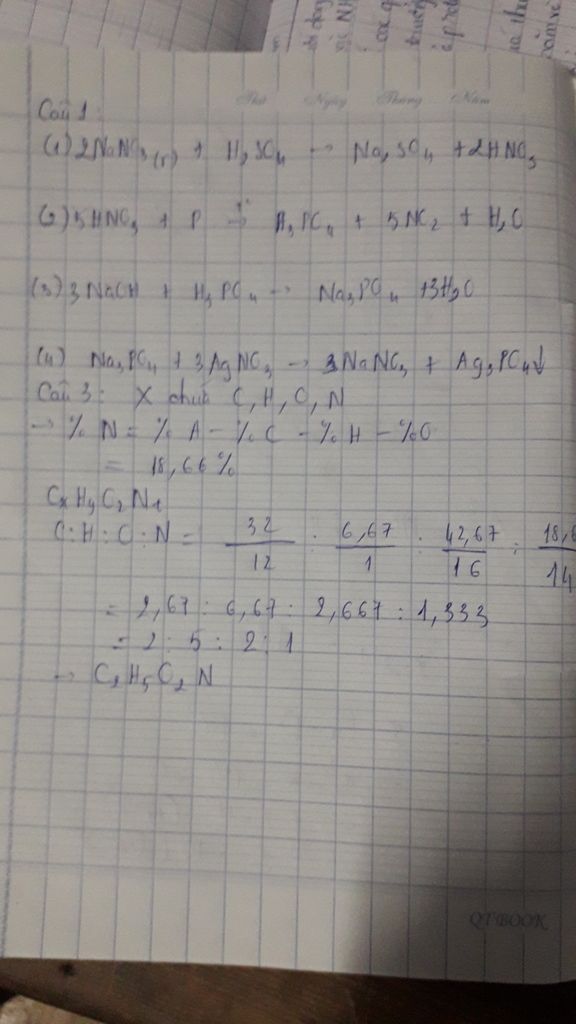 Thứ Ngày Tháng Năm
Câu 1:
(1) 2NaNO3 (r) + H2SO4 → Na2SO4 + 2HNO3
(2) 5HNO3 + P →t° H3PO4 + 5NO2 + H2O
(3) 3NaOH + H3PO4 → Na3PO4 + 3H2O
(4) Na3PO4 + 3AgNO3 → 3NaNO3 + Ag3PO4↓
Câu 3: X chứa C, H, O, N
→ % N = % A - % C - % H - % O
= 18,66 %
CxHyOzNt
C : H : O : N = 32/12 : 6,67/1 : 42,67/16 : 18,6/14
= 2,67 : 6,67 : 2,667 : 1,333
= 2 : 5 : 2 : 1
→ C2H5O2N
QT BOOK